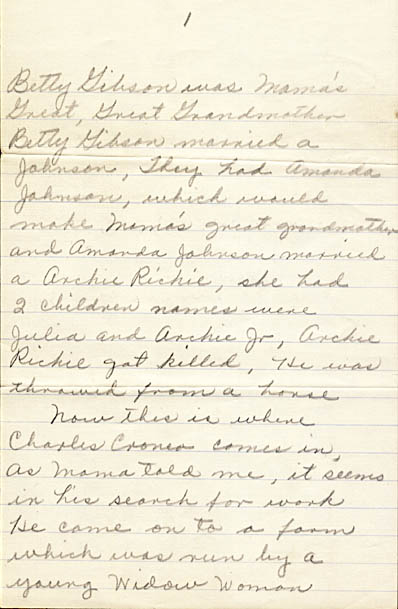 1
Betty Gibson was Mama's
Great, Great Grandmother
Betty Gibson married a
Johnson, They had Amanda
Johnson, which would
make Mama's great grandmother
and Amanda Johnson married
a Archie Richie, she had
2 children names were
Julia and Archie Jr, Archie
Richie got killed, He was
throwed from a horse
Now this is where
Charles Croneo comes in,
as Mama told me, it seems
in his search for work
He came on to a farm
which was run by a
young Widow Woman